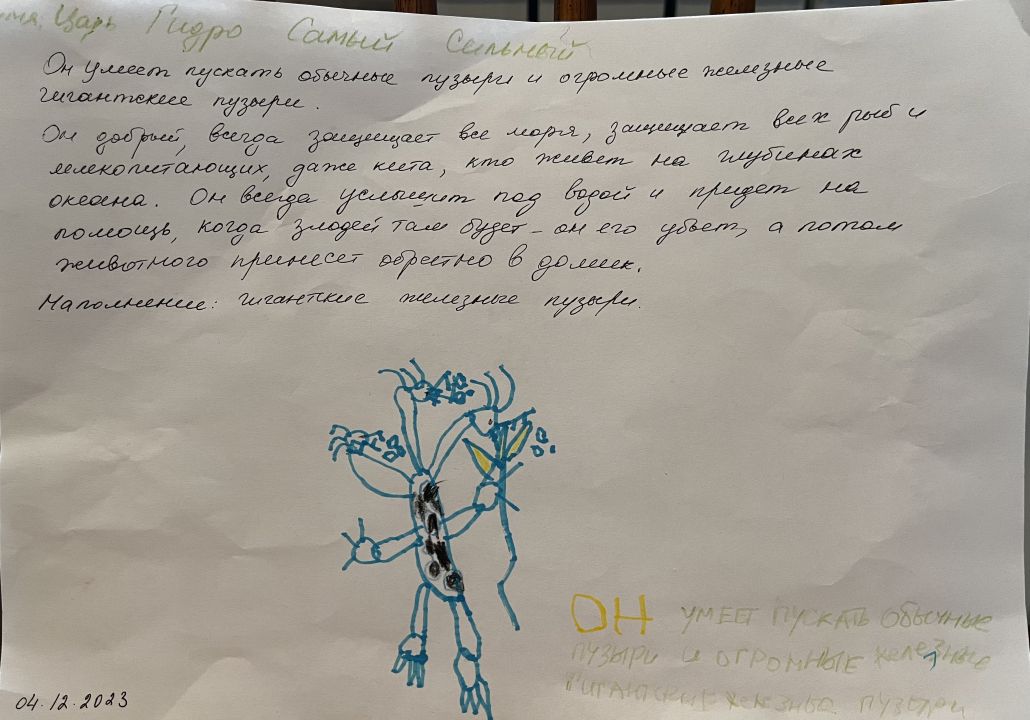 имя. Царь Гидро Самый сильный
Он умеет пускать обычные пузыри и огромные железные
гигантские пузыри.
Он добрый, всегда защищает все моря, защищает всех рыб и
млекопитающих, даже кита, кто живет на глубинах
океана. Он всегда услышит под водой и придет на
помощь, когда злодей там будет – он его убьет, а потом
животного принесет обратно в домик.
Наполнение: гигантские железные пузыри.
ОН УМЕЕТ ПУСКАТЬ ОБЫЧНЫЕ
ПУЗЫРИ И ОГРОМНЫЕ железные
ГИГАНТСКИЕ железные пузыри
04.12.2023